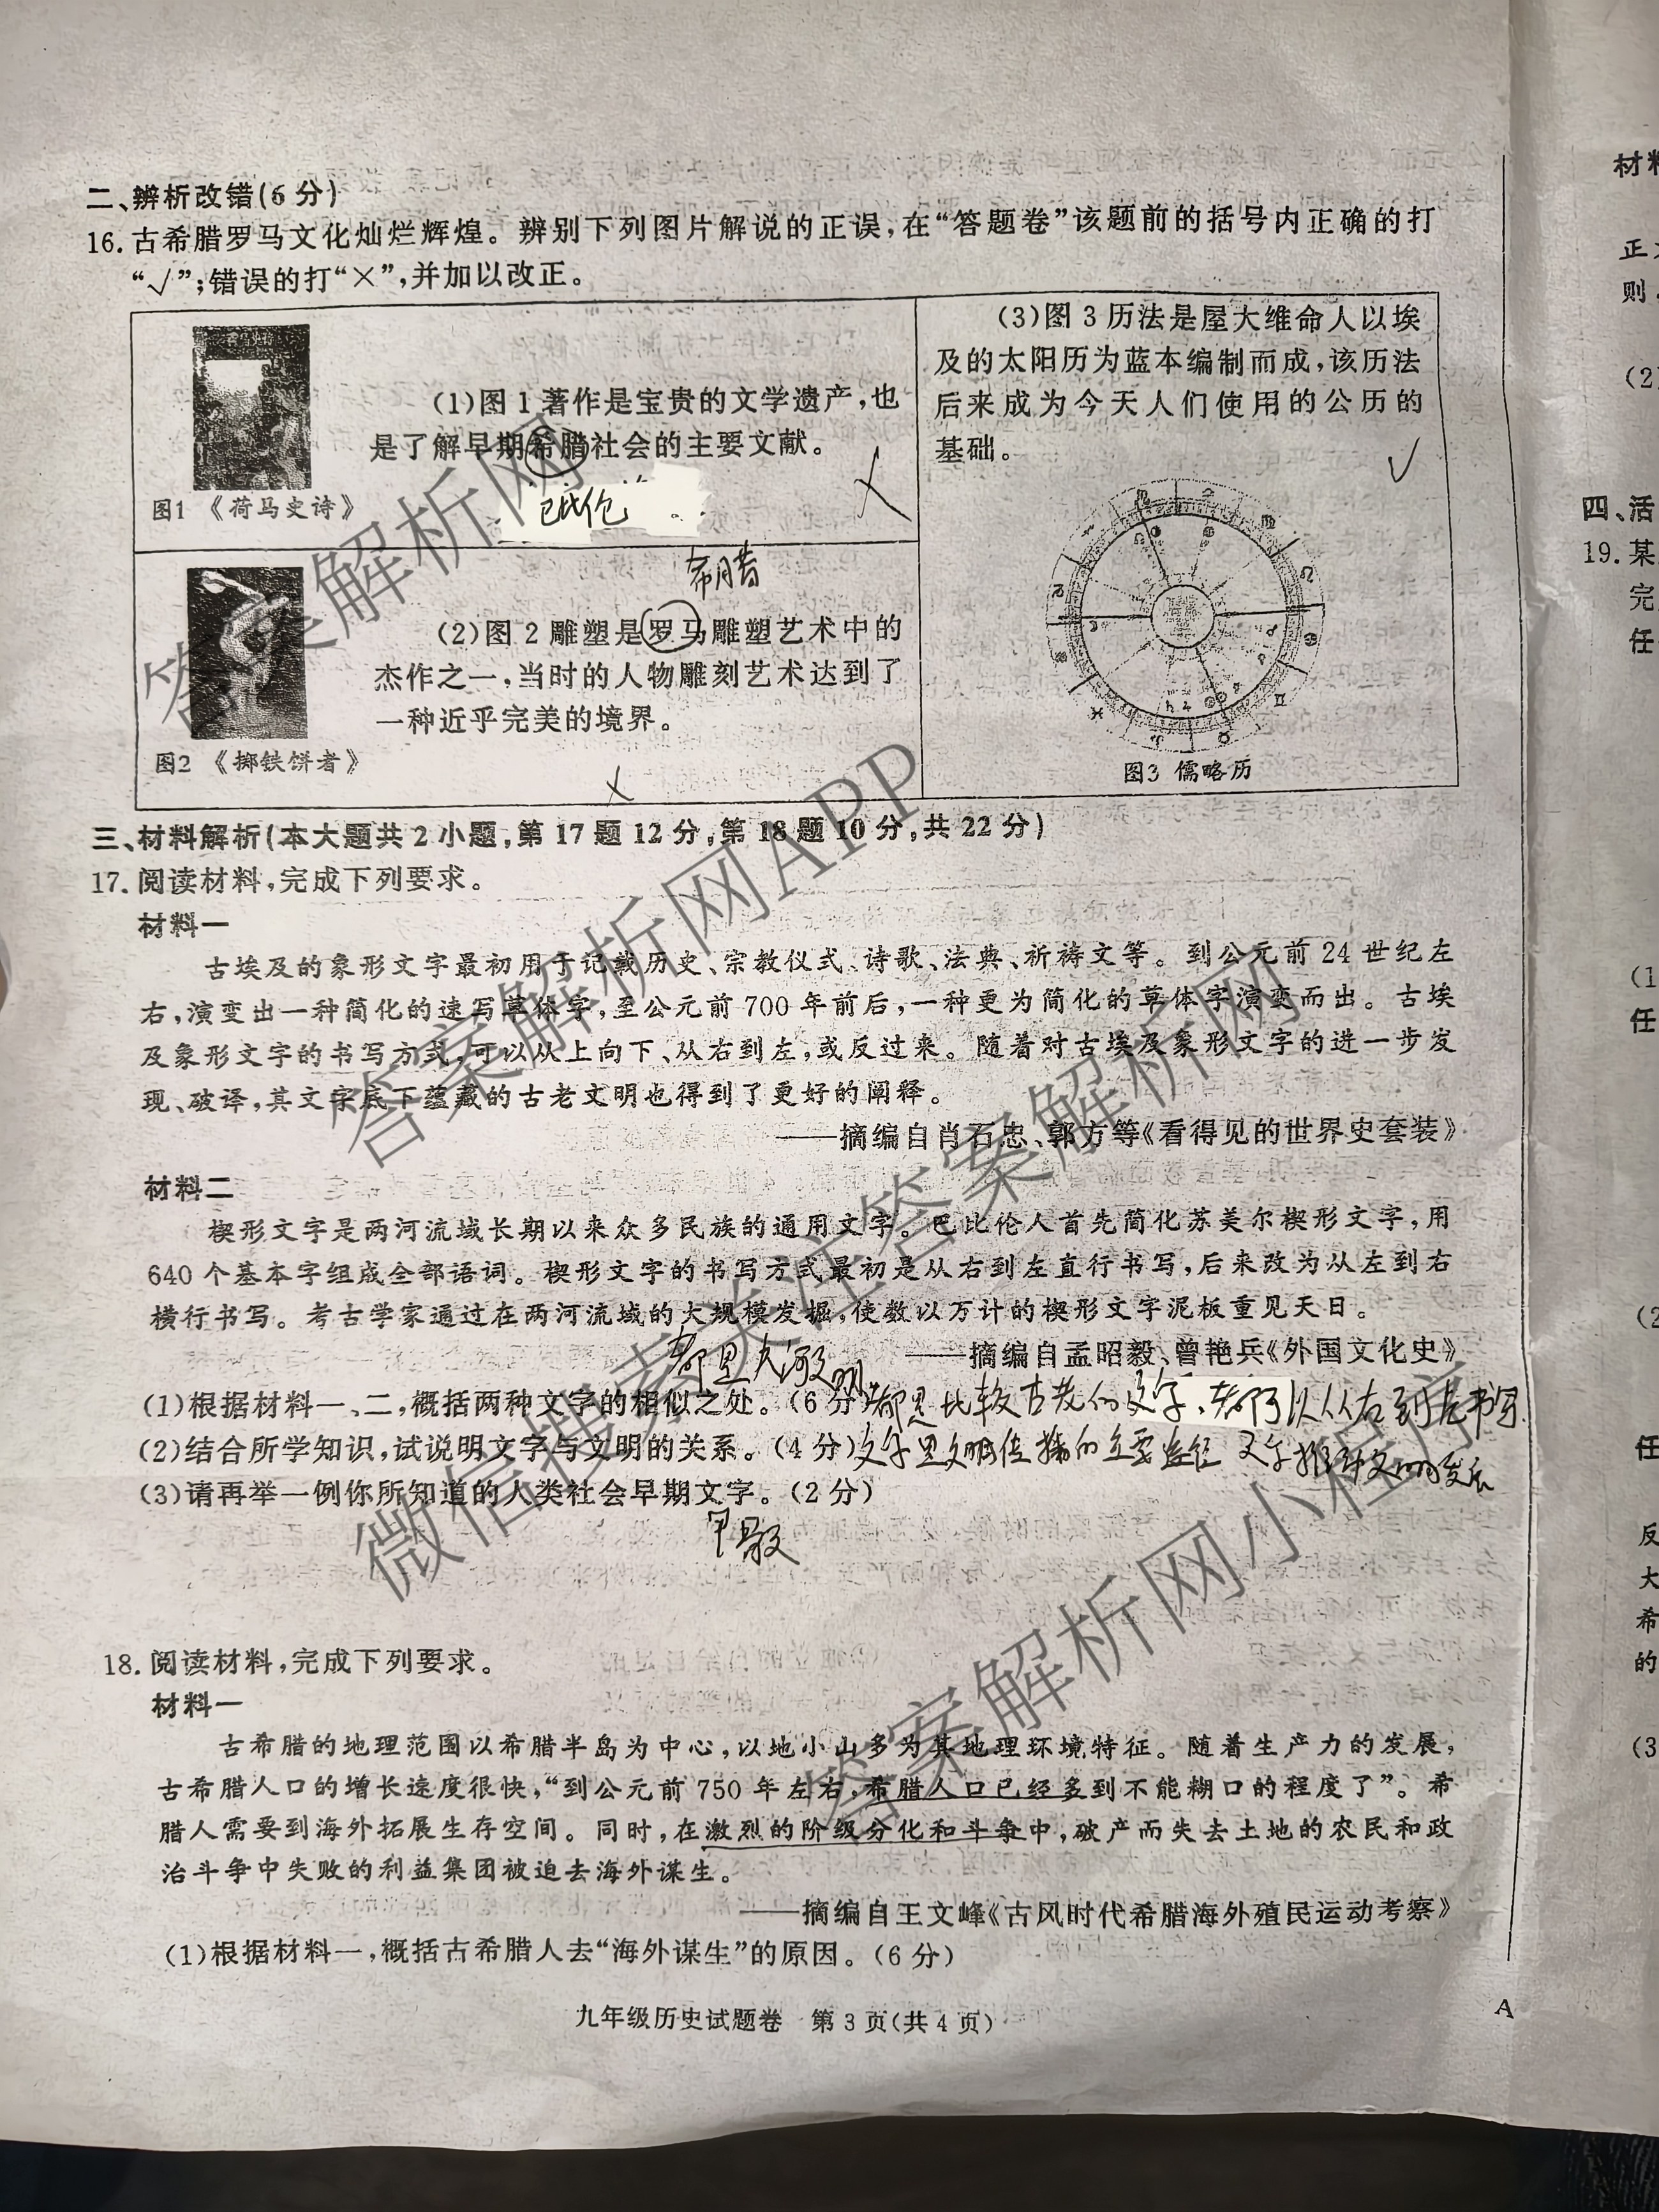 二、辨析改错(6分)
16.古希腊罗马文化灿烂辉煌。辨别下列图片解说的正误,在“答题卷”该题前的括号内正确的打
“√”;错误的打“×”,并加以改正。
(1)图1著作是宝贵的文学遗产,也
是了解早期希腊社会的主要文献。
图1 《荷马史诗》
巴比伦
×
希腊
(2)图2雕塑是罗马雕塑艺术中的
杰作之一,当时的人物雕刻艺术达到了
一种近乎完美的境界。
图2 《掷铁饼者》
×
(3)图3历法是屋大维命人以埃
及的太阳历为蓝本编制而成,该历法
后来成为今天人们使用的公历的
基础。
√
图3 儒略历
三、材料解析(本大题共2小题,第17题12分,第18题10分,共22分)
17.阅读材料,完成下列要求。
材料一
古埃及的象形文字最初用于记载历史、宗教仪式、诗歌、法典、祈祷文等。到公元前24世纪左
右,演变出一种简化的速写草体字,至公元前700年前后,一种更为简化的草体字演变而出。古埃
及象形文字的书写方式,可以从上向下、从右到左,或反过来。随着对古埃及象形文字的进一步发
现、破译,其文字底下蕴藏的古老文明也得到了更好的阐释。
——摘编自肖石忠、郭方等《看得见的世界史套装》
材料二
楔形文字是两河流域长期以来众多民族的通用文字。巴比伦人首先简化苏美尔楔形文字,用
640个基本字组成全部语词。楔形文字的书写方式最初是从右到左直行书写,后来改为从左到右
横行书写。考古学家通过在两河流域的大规模发掘,使数以万计的楔形文字泥板重见天日。
——摘编自孟昭毅、曾艳兵《外国文化史》
都是大河文明
(1)根据材料一、二,概括两种文字的相似之处。(6分)都是比较古老的文字、都可以从右到左书写
(2)结合所学知识,试说明文字与文明的关系。(4分)文字是文明传播的主要途径 文字推动文明的发展
(3)请再举一例你所知道的人类社会早期文字。(2分)
甲骨文
18.阅读材料,完成下列要求。
材料一
古希腊的地理范围以希腊半岛为中心,以地小山多为其地理环境特征。随着生产力的发展,
古希腊人口的增长速度很快,“到公元前750年左右,希腊人口已经多到不能糊口的程度了”。希
腊人需要到海外拓展生存空间。同时,在激烈的阶级分化和斗争中,破产而失去土地的农民和政
治斗争中失败的利益集团被迫去海外谋生。
——摘编自王文峰《古风时代希腊海外殖民运动考察》
(1)根据材料一,概括古希腊人去“海外谋生”的原因。(6分)
九年级历史试题卷 第3页(共4页)
A
材料
正
则
(2)
四、活
19.某
完
任
(1
任
(2
任
反
大
希
的
(3
答案解析网
答案解析网APP
微信搜索关注答案解析网
答案解析网小程序